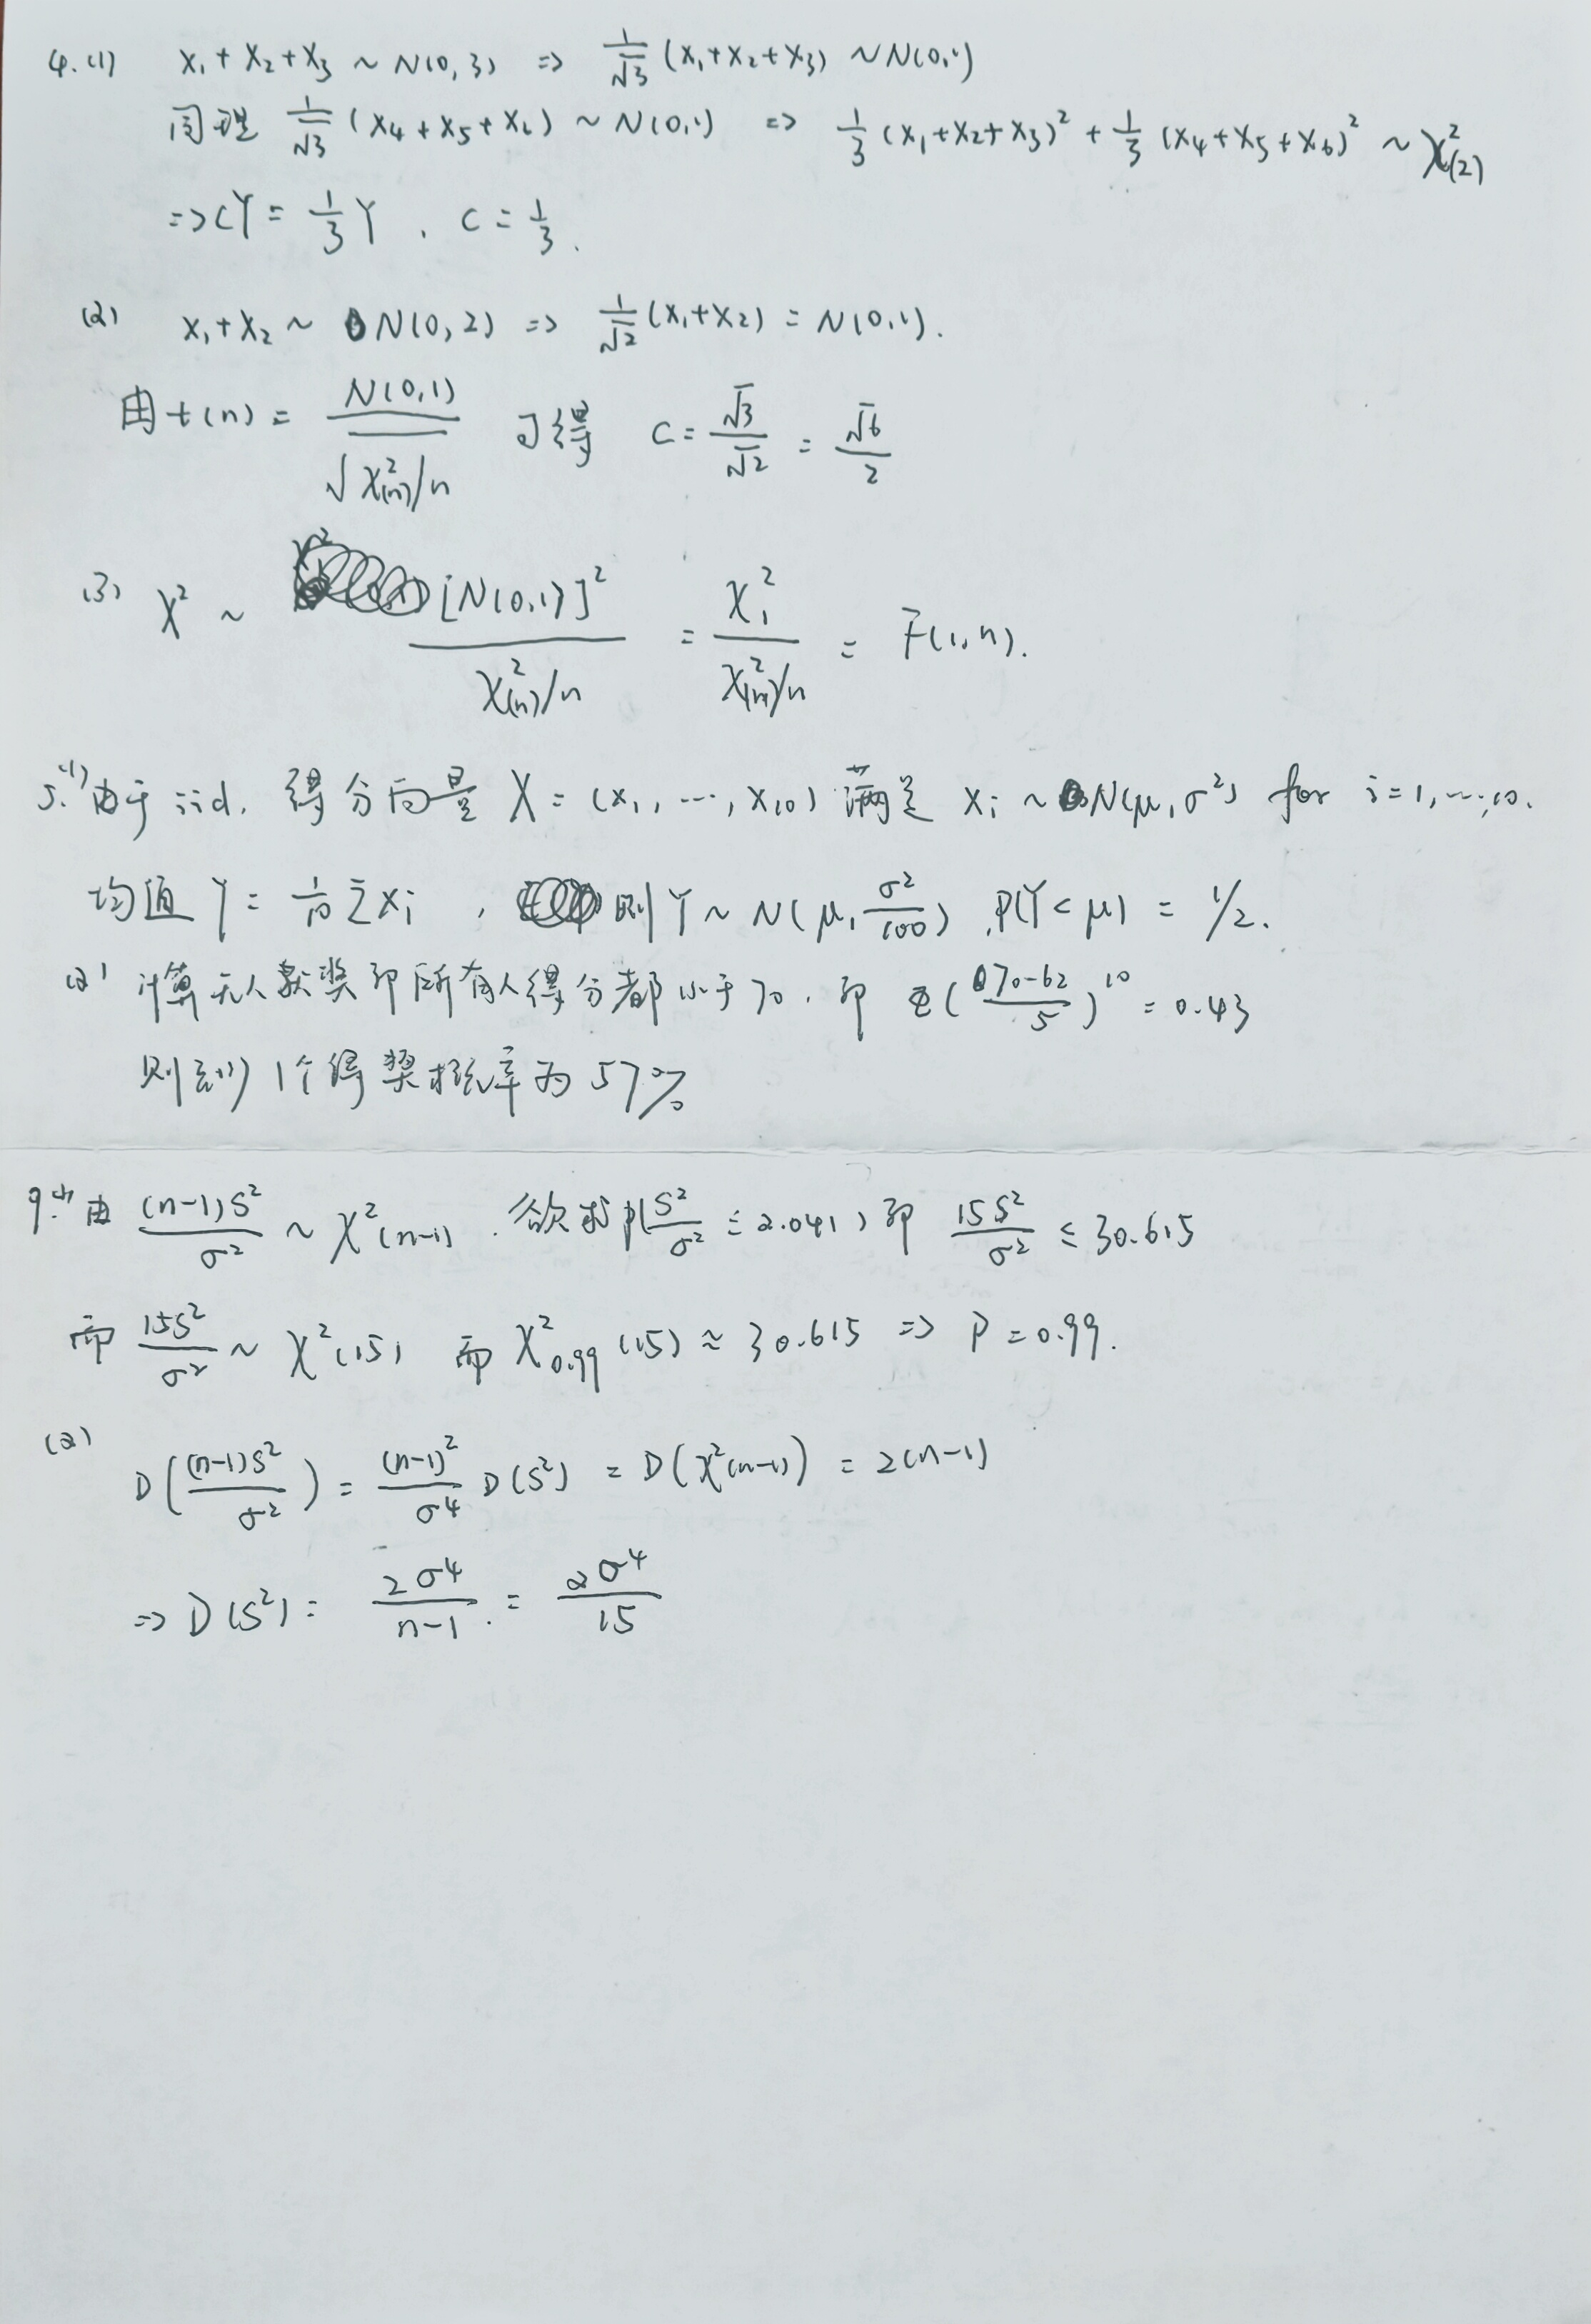 4.(1) X₁+X₂+X₃ ~ N(0,3) => 1/√3 (X₁+X₂+X₃) ~ N(0,1)
同理 1/√3 (X₄+X₅+X₆) ~ N(0,1) => 1/3 (X₁+X₂+X₃)² + 1/3 (X₄+X₅+X₆)² ~ χ²(2)
=> CY = 1/3 Y , C = 1/3 .
(2) X₁+X₂ ~ N(0,2) => 1/√2 (X₁+X₂) = N(0,1).
由 t(n) = N(0,1) / √(χ²(n)/n) 可得 C = √3/√2 = √6/2
(3) X² ~ [N(0,1)]² / (χ²(n)/n) = χ₁² / (χ²(n)/n) = F(1,n).
5.(1) 由于 iid. 得分向量 X = (X₁, …, X₁₀) 满足 Xᵢ ~ N(μ,σ²) for i=1,…,10.
均值 Y = 1/10 Σxᵢ , 则 Y ~ N(μ, σ²/100) , P(Y<μ) = 1/2.
(2) 计算无人获奖即所有人得分都小于70, 即 Φ((70-62)/5)¹⁰ = 0.43
则至少1个得奖概率为57%
9.(1) 由 (n-1)S²/σ² ~ χ²(n-1) . 欲求 P(S²/σ² ≤ 2.041) 即 15S²/σ² ≤ 30.615
而 15S²/σ² ~ χ²(15) 而 χ²₀.₉₉(15) ≈ 30.615 => P = 0.99.
(2) D((n-1)S²/σ²) = (n-1)²/σ⁴ D(S²) = D(χ²(n-1)) = 2(n-1)
=> D(S²) = 2σ⁴/(n-1) = 2σ⁴/15